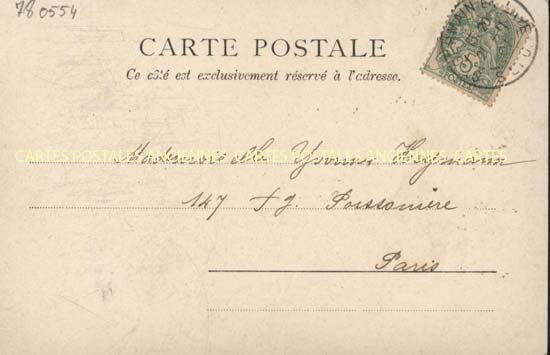 78 0554
CARTE POSTALE
Ce côté est exclusivement réservé à l'adresse.
CARTES POSTALES ANCIENNES CARTES
Mademoiselle Yvonne
147 Fg. Poissonière
Paris